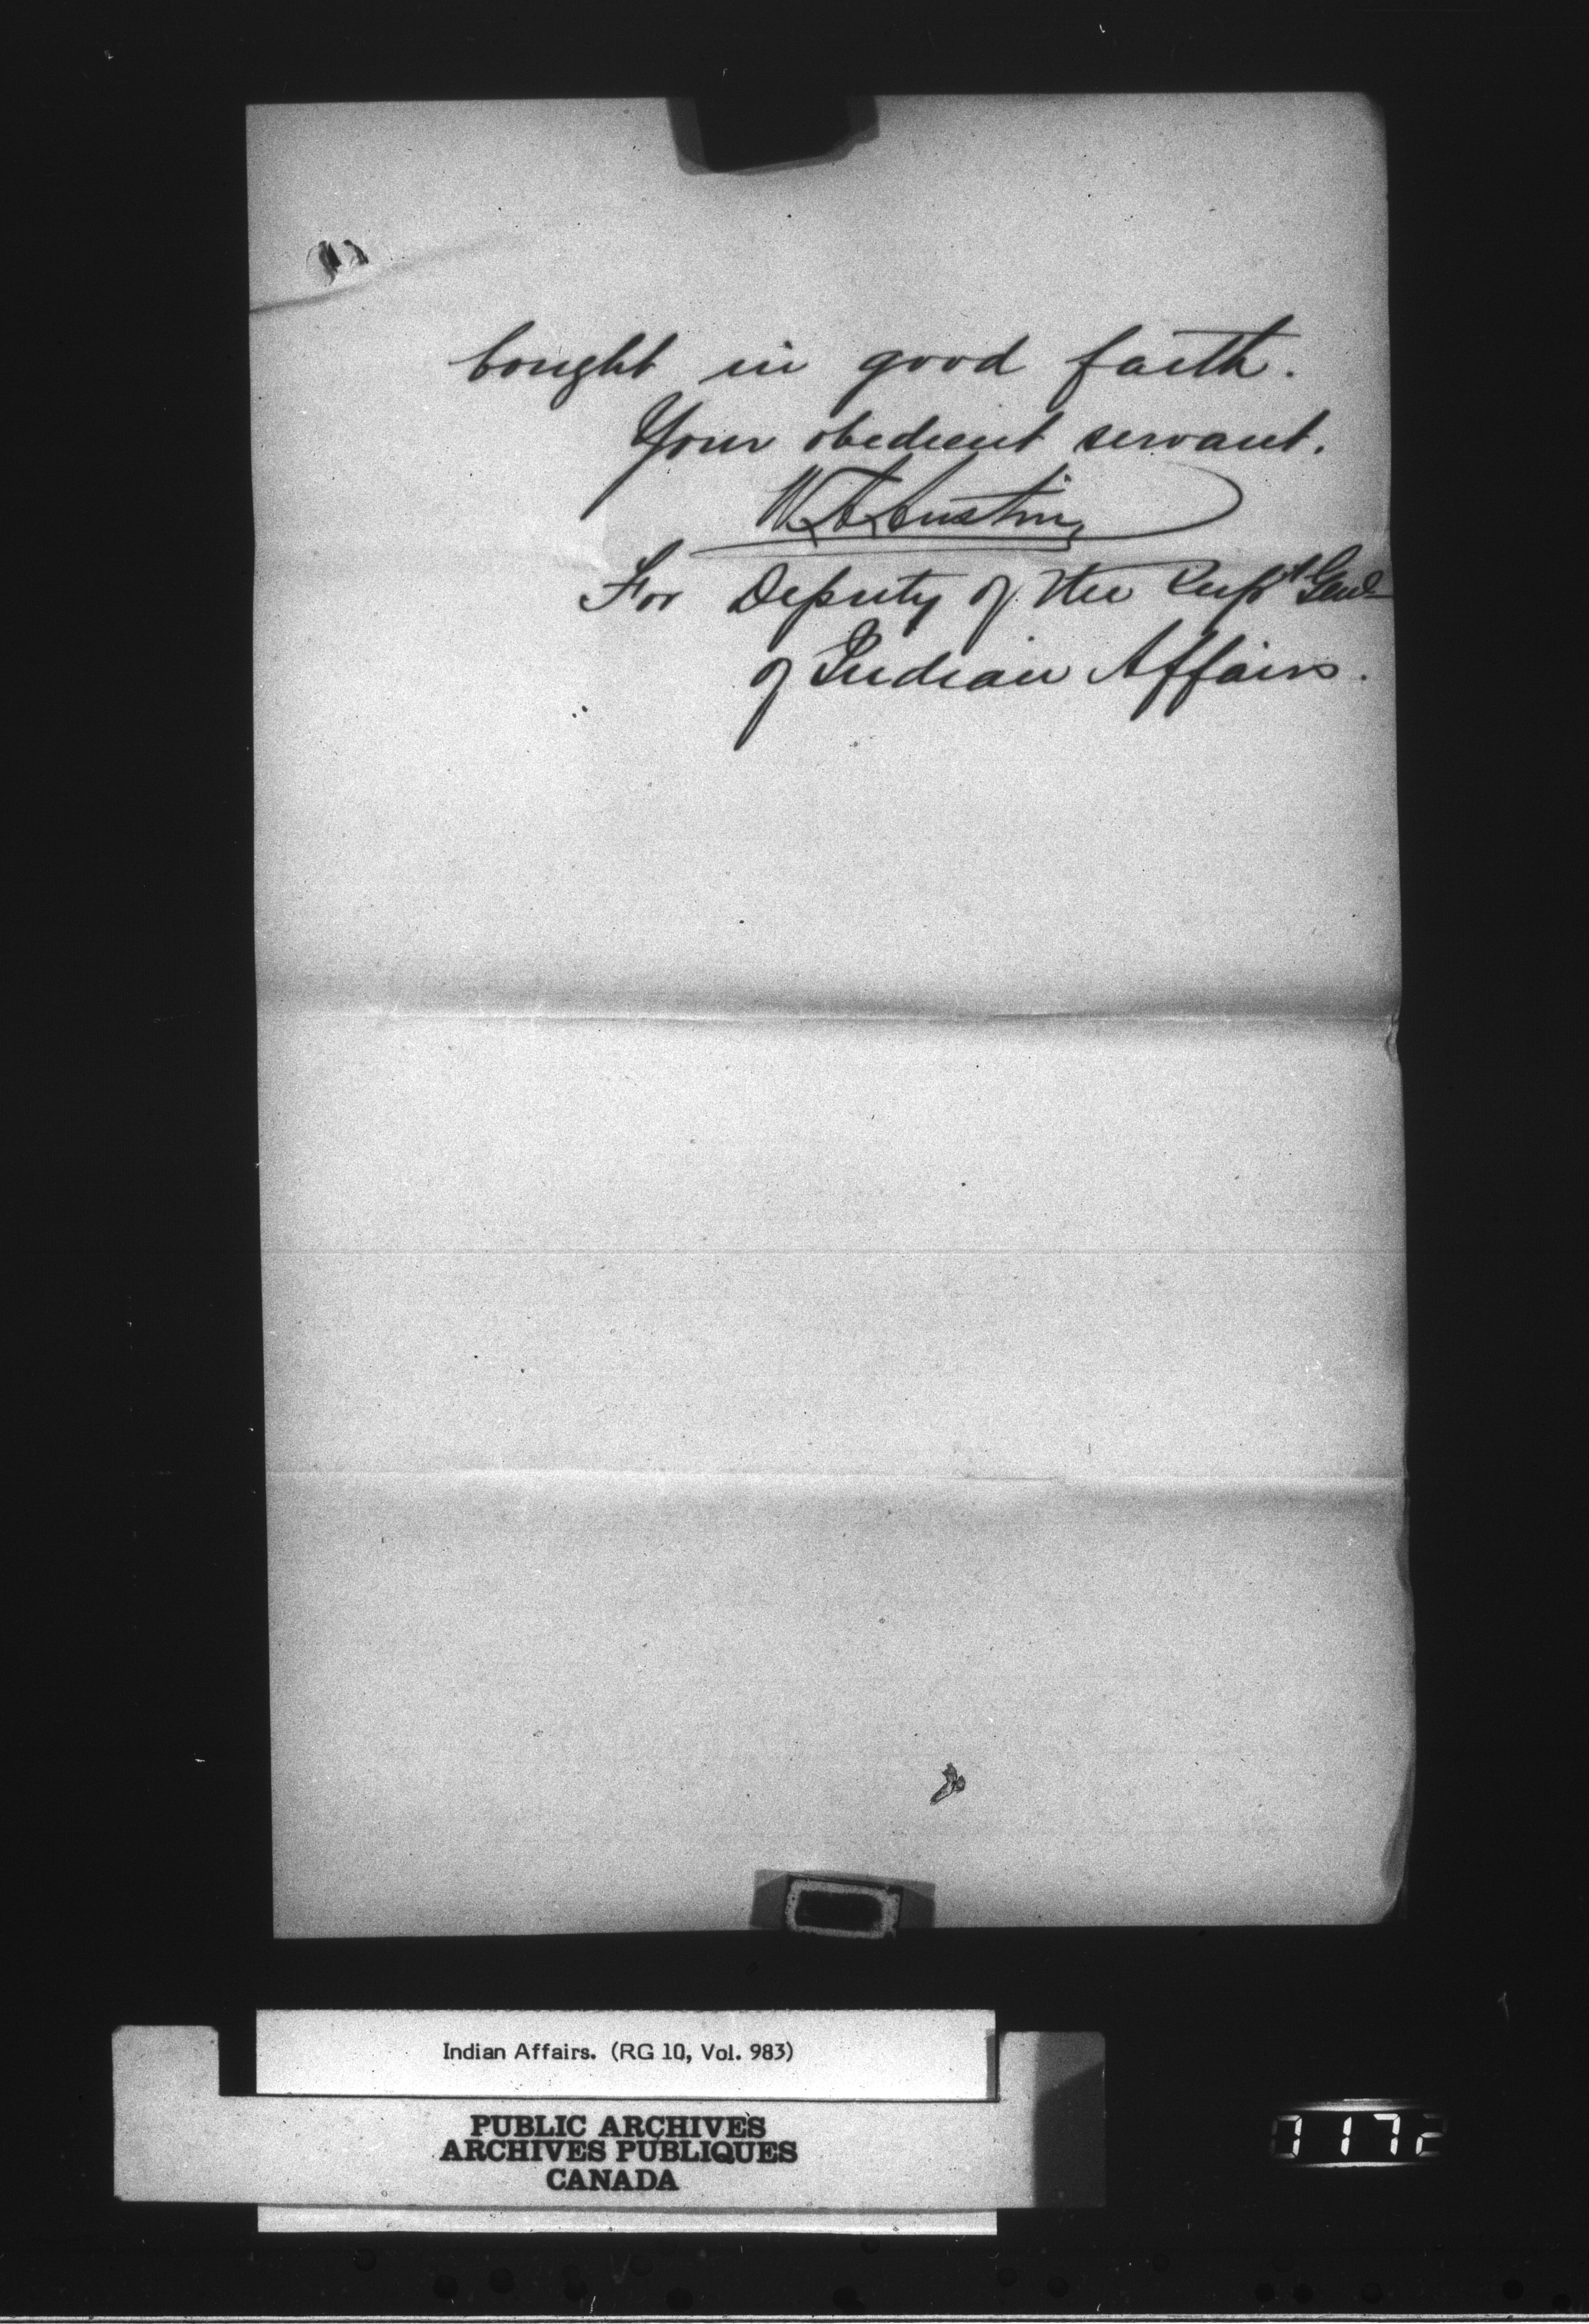 bought in good faith.
Your obedient servant.
W A Austin
For Deputy of the Supt Genl
of Indian Affairs.
Indian Affairs. (RG 10, Vol. 983)
PUBLIC ARCHIVES
ARCHIVES PUBLIQUES
CANADA
1172